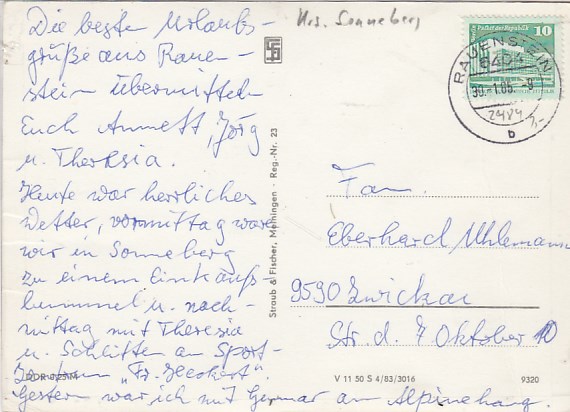 Die besten Urlaubs-
grüße aus Rauen-
stein übermitteln
Euch Annett, Jörg
u. Theresia.
Heute war herrliches
Wetter, vormittag waren
wir in Sonneberg
zu einem Einkaufs-
bummel u. nach-
mittag mit Theresia
u. Schlitten am Sport-
"Fr. Heckert".
Gestern war ich mit German am Alpinehang.
Krs. Sonneberg
Straub & Fischer, Meiningen · Reg.-Nr. 23
10
RAUENSTEIN
6404
30.-1.85.-9
b
Fam.
Eberhard Uhlemann
9590 Zwickau
Str. d. 7. Oktober 10
V 11 50 S 4/83/3016
9320